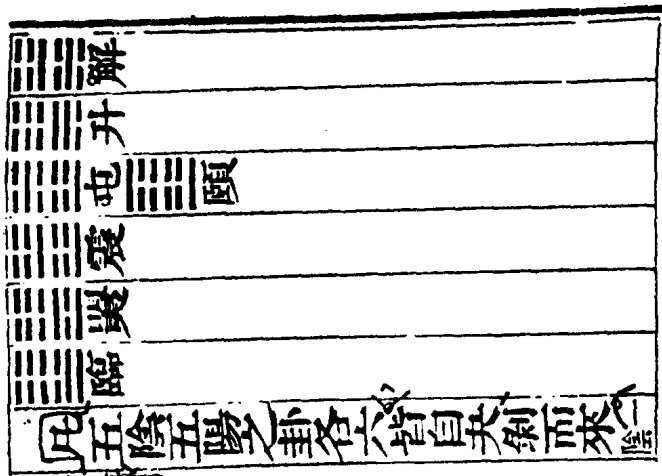 解
升
屯 頤
震
明夷
臨
凡五陰五陽之卦各六皆自夬剝而來一陰